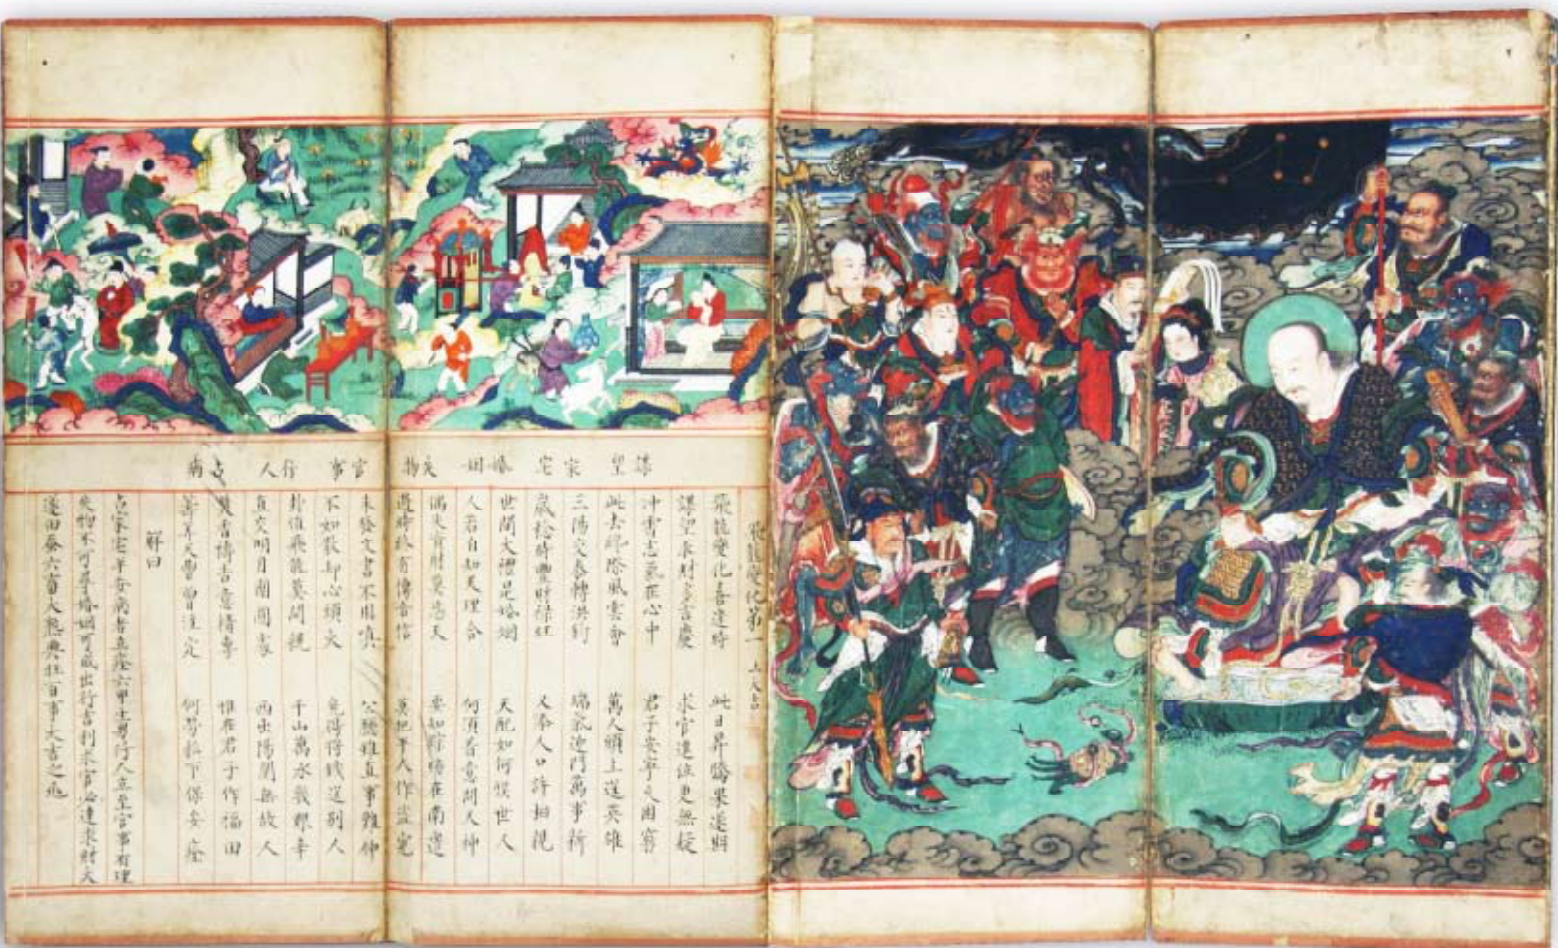 謀望 家宅 婚姻 失物 官事 行人 占病
飛龍變化第一 上大吉
飛龍變化喜逢時 此日昇騰果遂期
謀望求財多吉慶 求官進位更無疑
冲霄志氣在心中 君子安寧久困窮
此去終際風雲會 萬人頭上逞英雄
三陽交泰轉洪鈞 瑞氣迎門萬事新
歲稔時豐財祿旺 又添人口許相親
世間大禮是婚姻 天配如何悞世人
人若自知天理合 何須着意問天神
偶失資財莫怨天 要知踪跡在南邊
過時終有傳音信 莫把平人作盜冤
未發文書不用嗔 公廳雖直事難伸
不如散却心頭火 免得將錢送別人
卦值飛龍莫問親 千山萬水幾艱辛
直交明月團圓夜 西出陽關無故人
書禱告意情專 惟在君子作福田
壽算天曹曾注定 何勞下保安痊
解曰
占家宅平安病者立痊六甲生男行人立至官事有理
失物不可尋婚姻可成出行吉利求官必達求財大
遂田蚕六畜大熟興旺百事大吉之兆